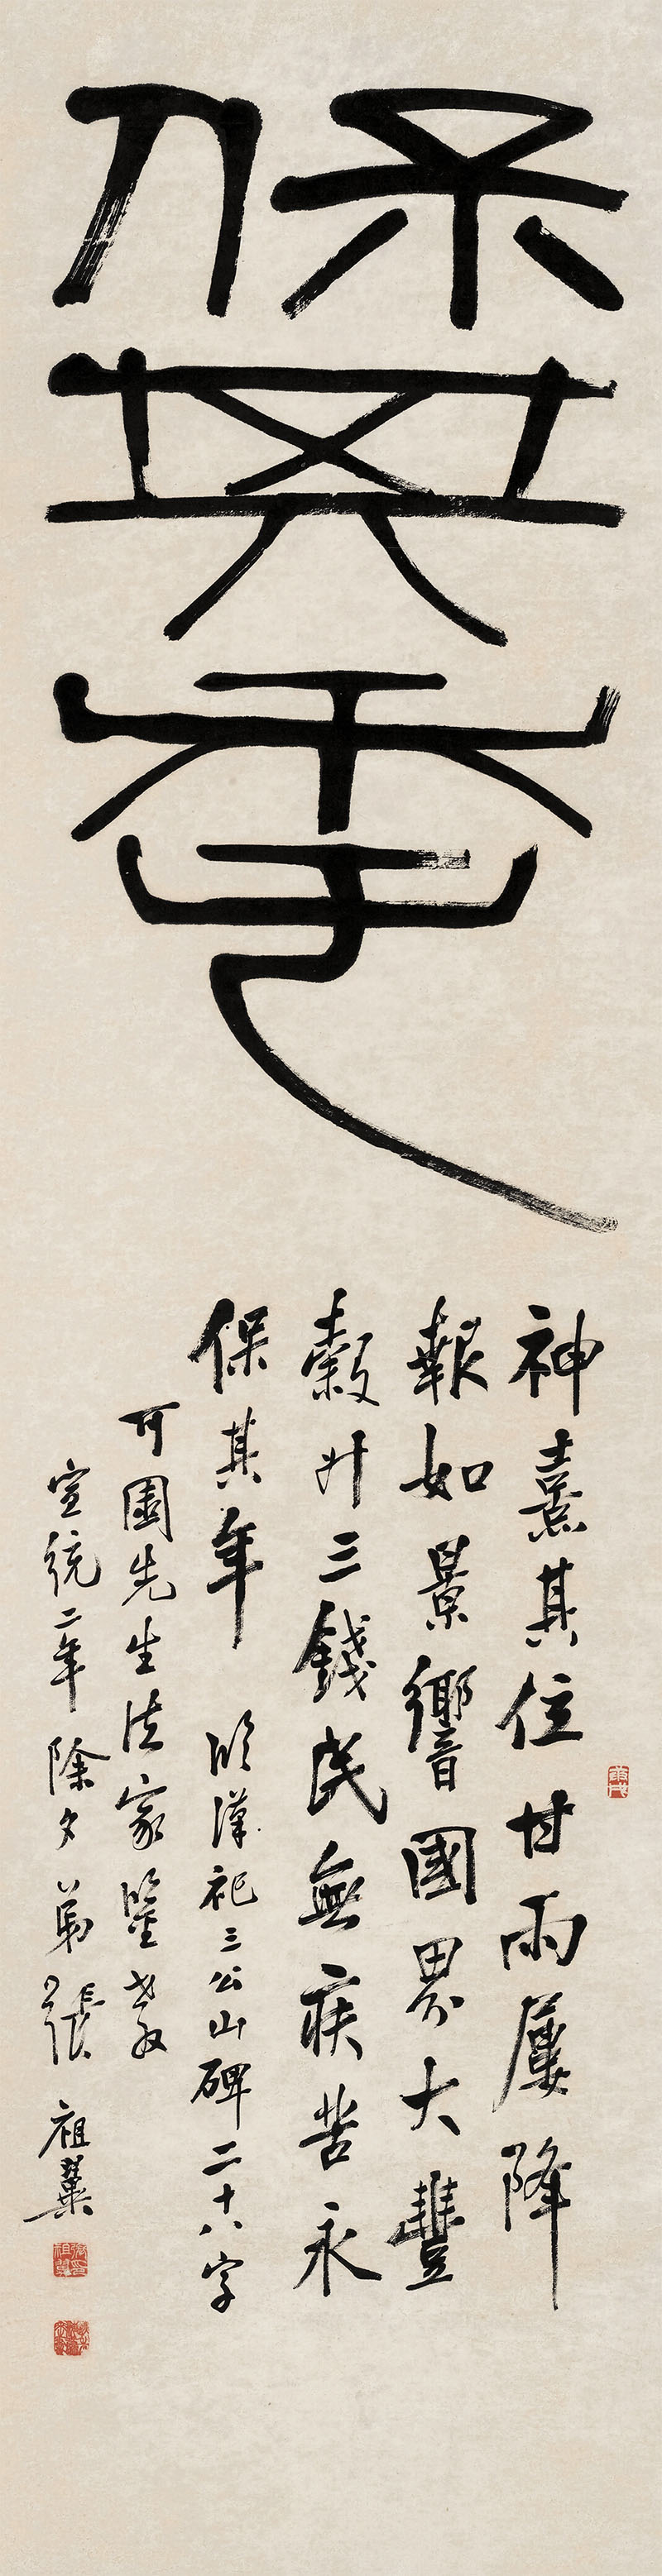 保其年
神熹其位甘雨屢降
報如景響國界大豐
穀斗三錢民無疾苦永
保其年 臨漢祀三公山碑二十八字
可園先生法家鑒教
宣統二年除夕弟張祖翼
庚戌